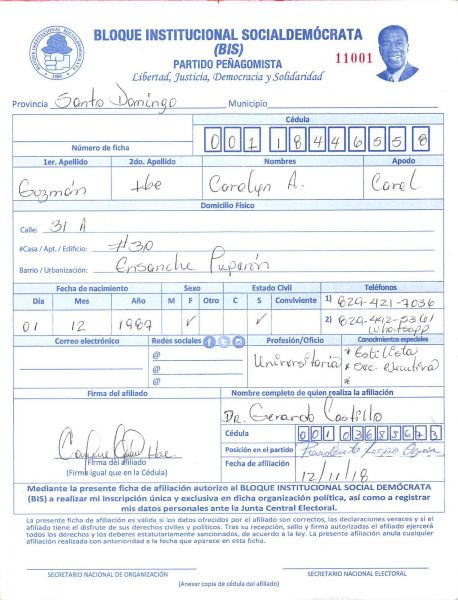 BLOQUE INSTITUCIONAL SOCIALDEMÓCRATA
(BIS)
PARTIDO PEÑAGOMISTA
Libertad, Justicia, Democracia y Solidaridad
11001
Provincia Santo Domingo Municipio
Cédula
Número de ficha 001 1844655 8
1er. Apellido 2do. Apellido Nombres Apodo
Guzmán Hbe Carolyn A. Carel
Domicilio Físico
Calle: 31 A
#Casa / Apt. / Edificio: #30
Barrio / Urbanización: Ensanche
Fecha de nacimiento Sexo Estado Civil Teléfonos
Día Mes Año M F Otro C S Conviviente
1) 829-421-7036
01 12 1987 ✓ ✓
2) 829-442-5361
Whatsapp
Correo electrónico Redes sociales Profesión/Oficio Conocimientos especiales
@ Universitaria * Estilista
@ * Sec. ejecutiva
@ *
Firma del afiliado Nombre completo de quien realiza la afiliación
Dr. Gerardo Castillo
Cédula 001 0368567 3
Posición en el partido Presidente
Firma del afiliado
(Firme igual que en la Cédula)
Fecha de afiliación 12/11/18
Mediante la presente ficha de afiliación autorizo al BLOQUE INSTITUCIONAL SOCIAL DEMÓCRATA
(BIS) a realizar mi inscripción única y exclusiva en dicha organización política, así como a registrar
mis datos personales ante la Junta Central Electoral.
La presente ficha de afiliación es válida si los datos ofrecidos por el afiliado son correctos, las declaraciones veraces y si el
afiliado tiene el disfrute de sus derechos civiles y políticos. Tras su recepción, sello y firma autorizados el afiliado ejercerá
todos los derechos y los deberes estatutariamente sancionados, de acuerdo a la ley. La presente afiliación anula cualquier
afiliación realizada con anterioridad a la fecha que aparece en esta ficha.
SECRETARIO NACIONAL DE ORGANIZACIÓN SECRETARIO NACIONAL ELECTORAL
(Anexar copia de cédula del afiliado)